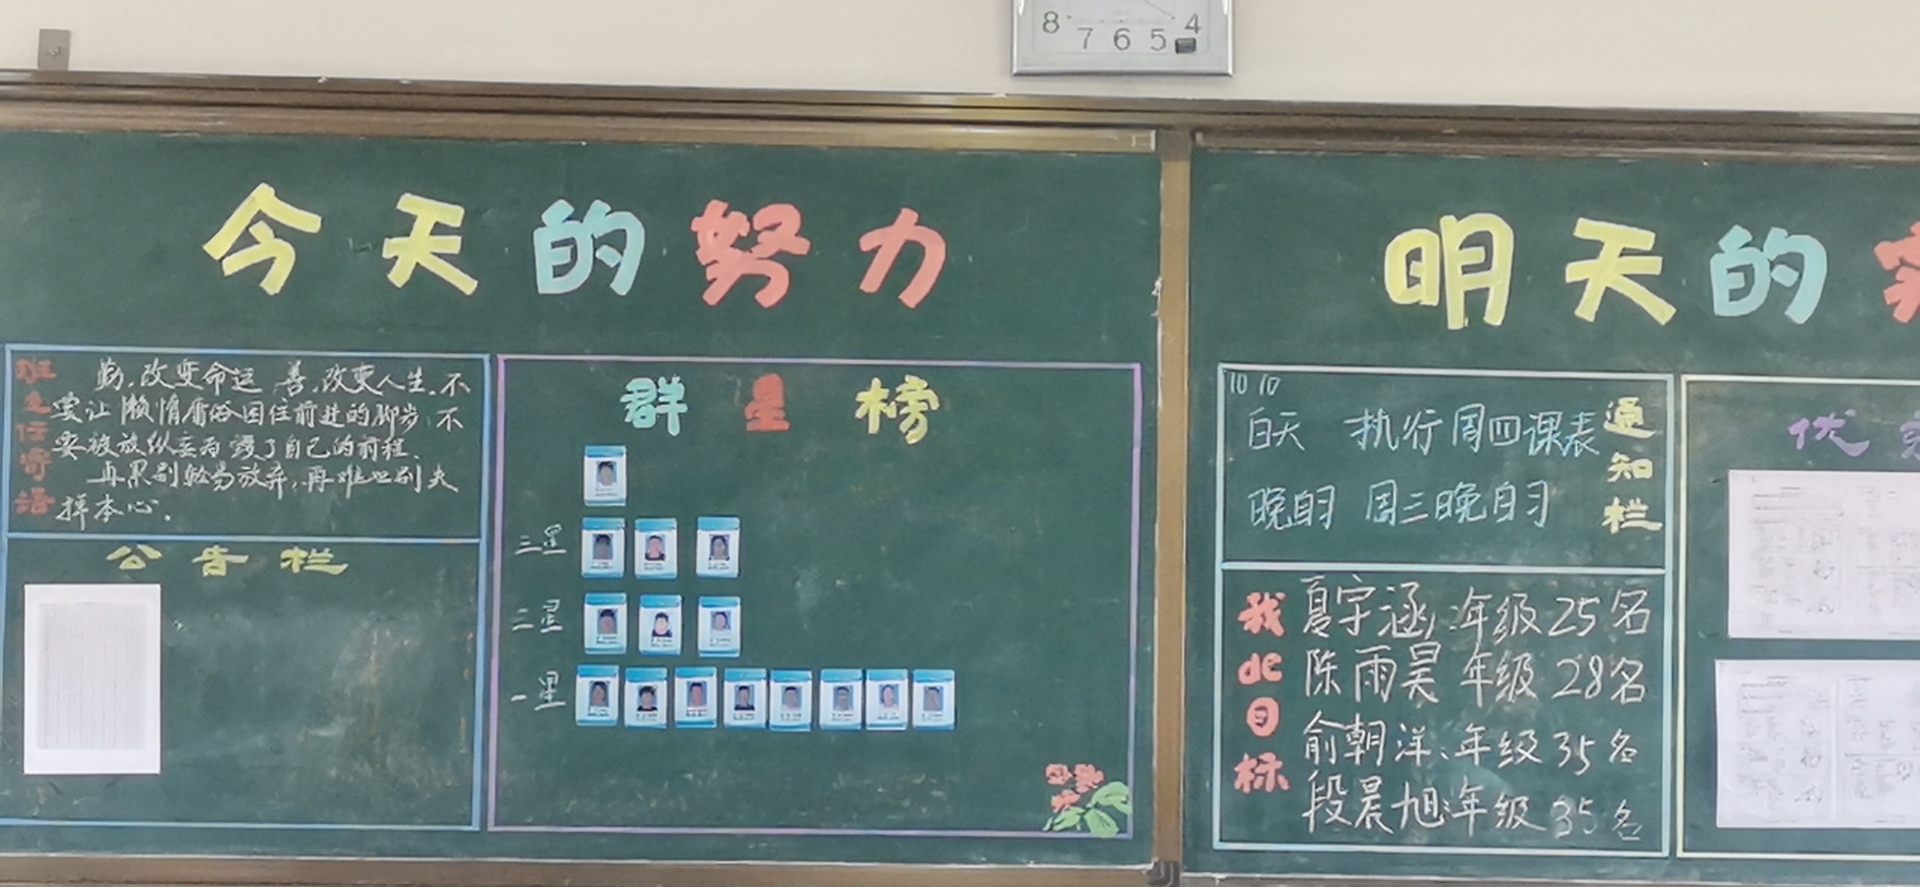 8 7 6 5 4
今天的努力
明天的
班主任寄语
勤,改变命运 善,改变人生。不
要让懒惰庸俗困住前进的脚步,不
要被放纵妄为 误了自己的前程。
再累别轻易放弃,再难也别失
掉本心。
公告栏
群星榜
三星
二星
一星
10 10
通知栏
白天 执行周四课表
晚自习 周三晚自习
我de目标
夏宇涵:年级25名
陈雨昊 年级28名
俞朝洋:年级35名
段晨旭:年级35名
优